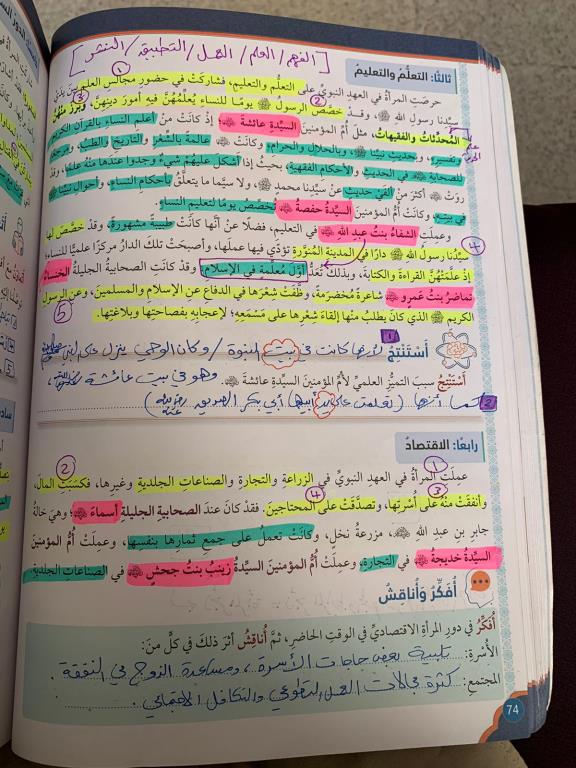 [الفهم / العلم / العمل / التطبيق / النشر]
ثالثًا: التعلُّم والتعليم
حرصَتِ المرأةُ في العهد النبويِّ على التعلُّم والتعليم، فشاركَتْ في حضورِ مجالسِ العلم بين يديْ
سيِّدنا رسولِ الله ﷺ، وقد خصَّصَ الرسولُ ﷺ يومًا للنساء يُعلِّمُهُنَّ فيه أمورَ دينِهنَّ، وبرزَ منهُنَّ
المُحدِّثاتُ والفقيهاتُ، مثل أمِّ المؤمنينَ السيِّدةِ عائشةَ؛ إذْ كانتْ منْ أعلمِ النساءِ بالقرآنِ الكريمِ
وتفسيرِهِ، وحديثِ نبيِّنا ﷺ، وبالحلالِ والحرامِ، وكانتْ عالمةً بالشِّعْرِ والتاريخِ والطبِّ، ومرجعًا
للصحابةِ في الحديثِ والأحكامِ الفقهيةِ، بحيثُ إذا أشكلَ عليهِمْ شيءٌ وجدوا عندَها منهُ علمًا، وقدْ
روتْ أكثرَ منْ ألفَيْ حديثٍ عنْ سيِّدِنا محمدٍ ﷺ، ولا سيَّما ما يتعلَّقُ بأحكامِ النساءِ، وأحوالِ نبيِّنا ﷺ
في بيتِهِ. وكانتْ أمُّ المؤمنينَ السيِّدةُ حفصةُ تُخصِّصُ يومًا لتعليمِ النساءِ.
وعملَتِ الشفاءُ بنتُ عبدِ اللهِ في التعليمِ، فضلًا عنْ أنَّها كانتْ طبيبةً مشهورةً، وقدْ خصَّصَ لها
سيِّدُنا رسولُ اللهِ ﷺ دارًا في المدينةِ المُنوَّرةِ تؤدّي فيها عملَها، وأصبحَتْ تلكَ الدارُ مركزًا علميًّا للنساءِ؛
إذْ علَّمَتْهُنَّ القراءةَ والكتابةَ، وبذلكَ تُعَدُّ أوَّلَ مُعلِّمةٍ في الإسلامِ. وقدْ كانتِ الصحابيةُ الجليلةُ الخنساءُ
تماضرُ بنتُ عمرٍو شاعرةً مخضرمةً، وظَّفَتْ شِعْرَها في الدفاعِ عنِ الإسلامِ والمسلمينَ، وعنِ الرسولِ
الكريمِ ﷺ الذي كانَ يطلبُ منْها إلقاءَ شِعْرِها على مَسْمَعِهِ؛ لإعجابِهِ بفصاحتِها وبلاغتِها.
أَسْتَنْتِجُ لأنها كانت في بيت النبوة / وكان الوحي ينزل على النبي
أَسْتَنْتِجُ سببَ التميُّزِ العلميِّ لأمِّ المؤمنينَ السيِّدةِ عائشةَ. وهو في بيت عائشة
كما أنها (تعلمت على يد أبيها أبي بكر الصديق)
رابعًا: الاقتصادُ
عملَتِ المرأةُ في العهدِ النبويِّ في الزراعةِ والتجارةِ والصناعاتِ الجلديةِ وغيرِها، فكسبَتِ المالَ،
وأنفقَتْ منْهُ على أسرتِها، وتصدَّقَتْ على المحتاجينَ. فقدْ كانَ عندَ الصحابيةِ الجليلةِ أسماءَ، وهيَ خالةُ
جابرِ بنِ عبدِ اللهِ، مزرعةُ نخلٍ، وكانتْ تعملُ على جمعِ ثمارِها بنفسِها، وعملَتْ أمُّ المؤمنينَ
السيِّدةُ خديجةُ في التجارةِ، وعملَتْ أمُّ المؤمنينَ السيِّدةُ زينبُ بنتُ جحشٍ في الصناعاتِ الجلديةِ.
أُفَكِّرُ وَأُناقِشُ
أُفَكِّرُ في دورِ المرأةِ الاقتصاديِّ في الوقتِ الحاضرِ، ثمَّ أُناقِشُ أثرَ ذلكَ في كلٍّ منَ:
الأُسرةِ: تلبية بعض حاجات الأسرة، ومساعدة الزوج في النفقة.
المجتمعِ: كثرة مجالات العمل التطوعي والتكافل الاجتماعي.
74